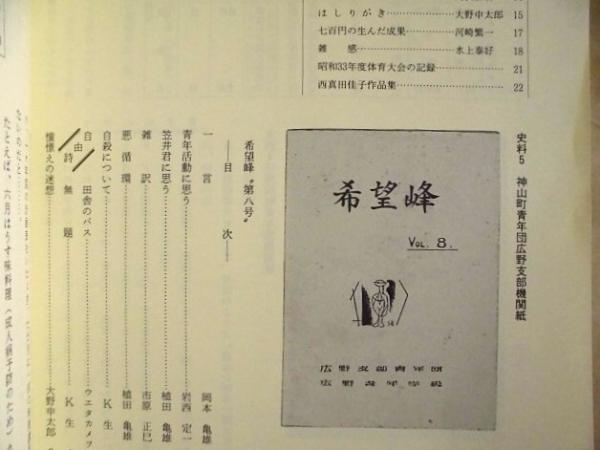 はしりがき…………………大野申太郎 15
七百円の生んだ成果…………河崎繁一 17
雑　感…………………水上泰好 18
昭和33年度体育大会の記録…………………21
西真田佳子作品集…………………22
史料5　神山町青年団広野支部機関紙
希望峰
VOL. 8.
広野支部青年団
広野青年学級
希望峰〝第八号〟
――目　次――
一　言…………………岡本 亀雄
青年活動に思う…………………岩西 定一
笠井君に思う…………………植田 亀雄
雑　訳…………………市原 正巳
悪循環…………………植田 亀雄
自殺について…………………K 生
自由詩
田舎のバス…………………ウエタカメヲ
無　題…………………K 生
憤憬えの迷想…………………大野申太郎
たとえば、六月はうす味料理（成人病予防のため）